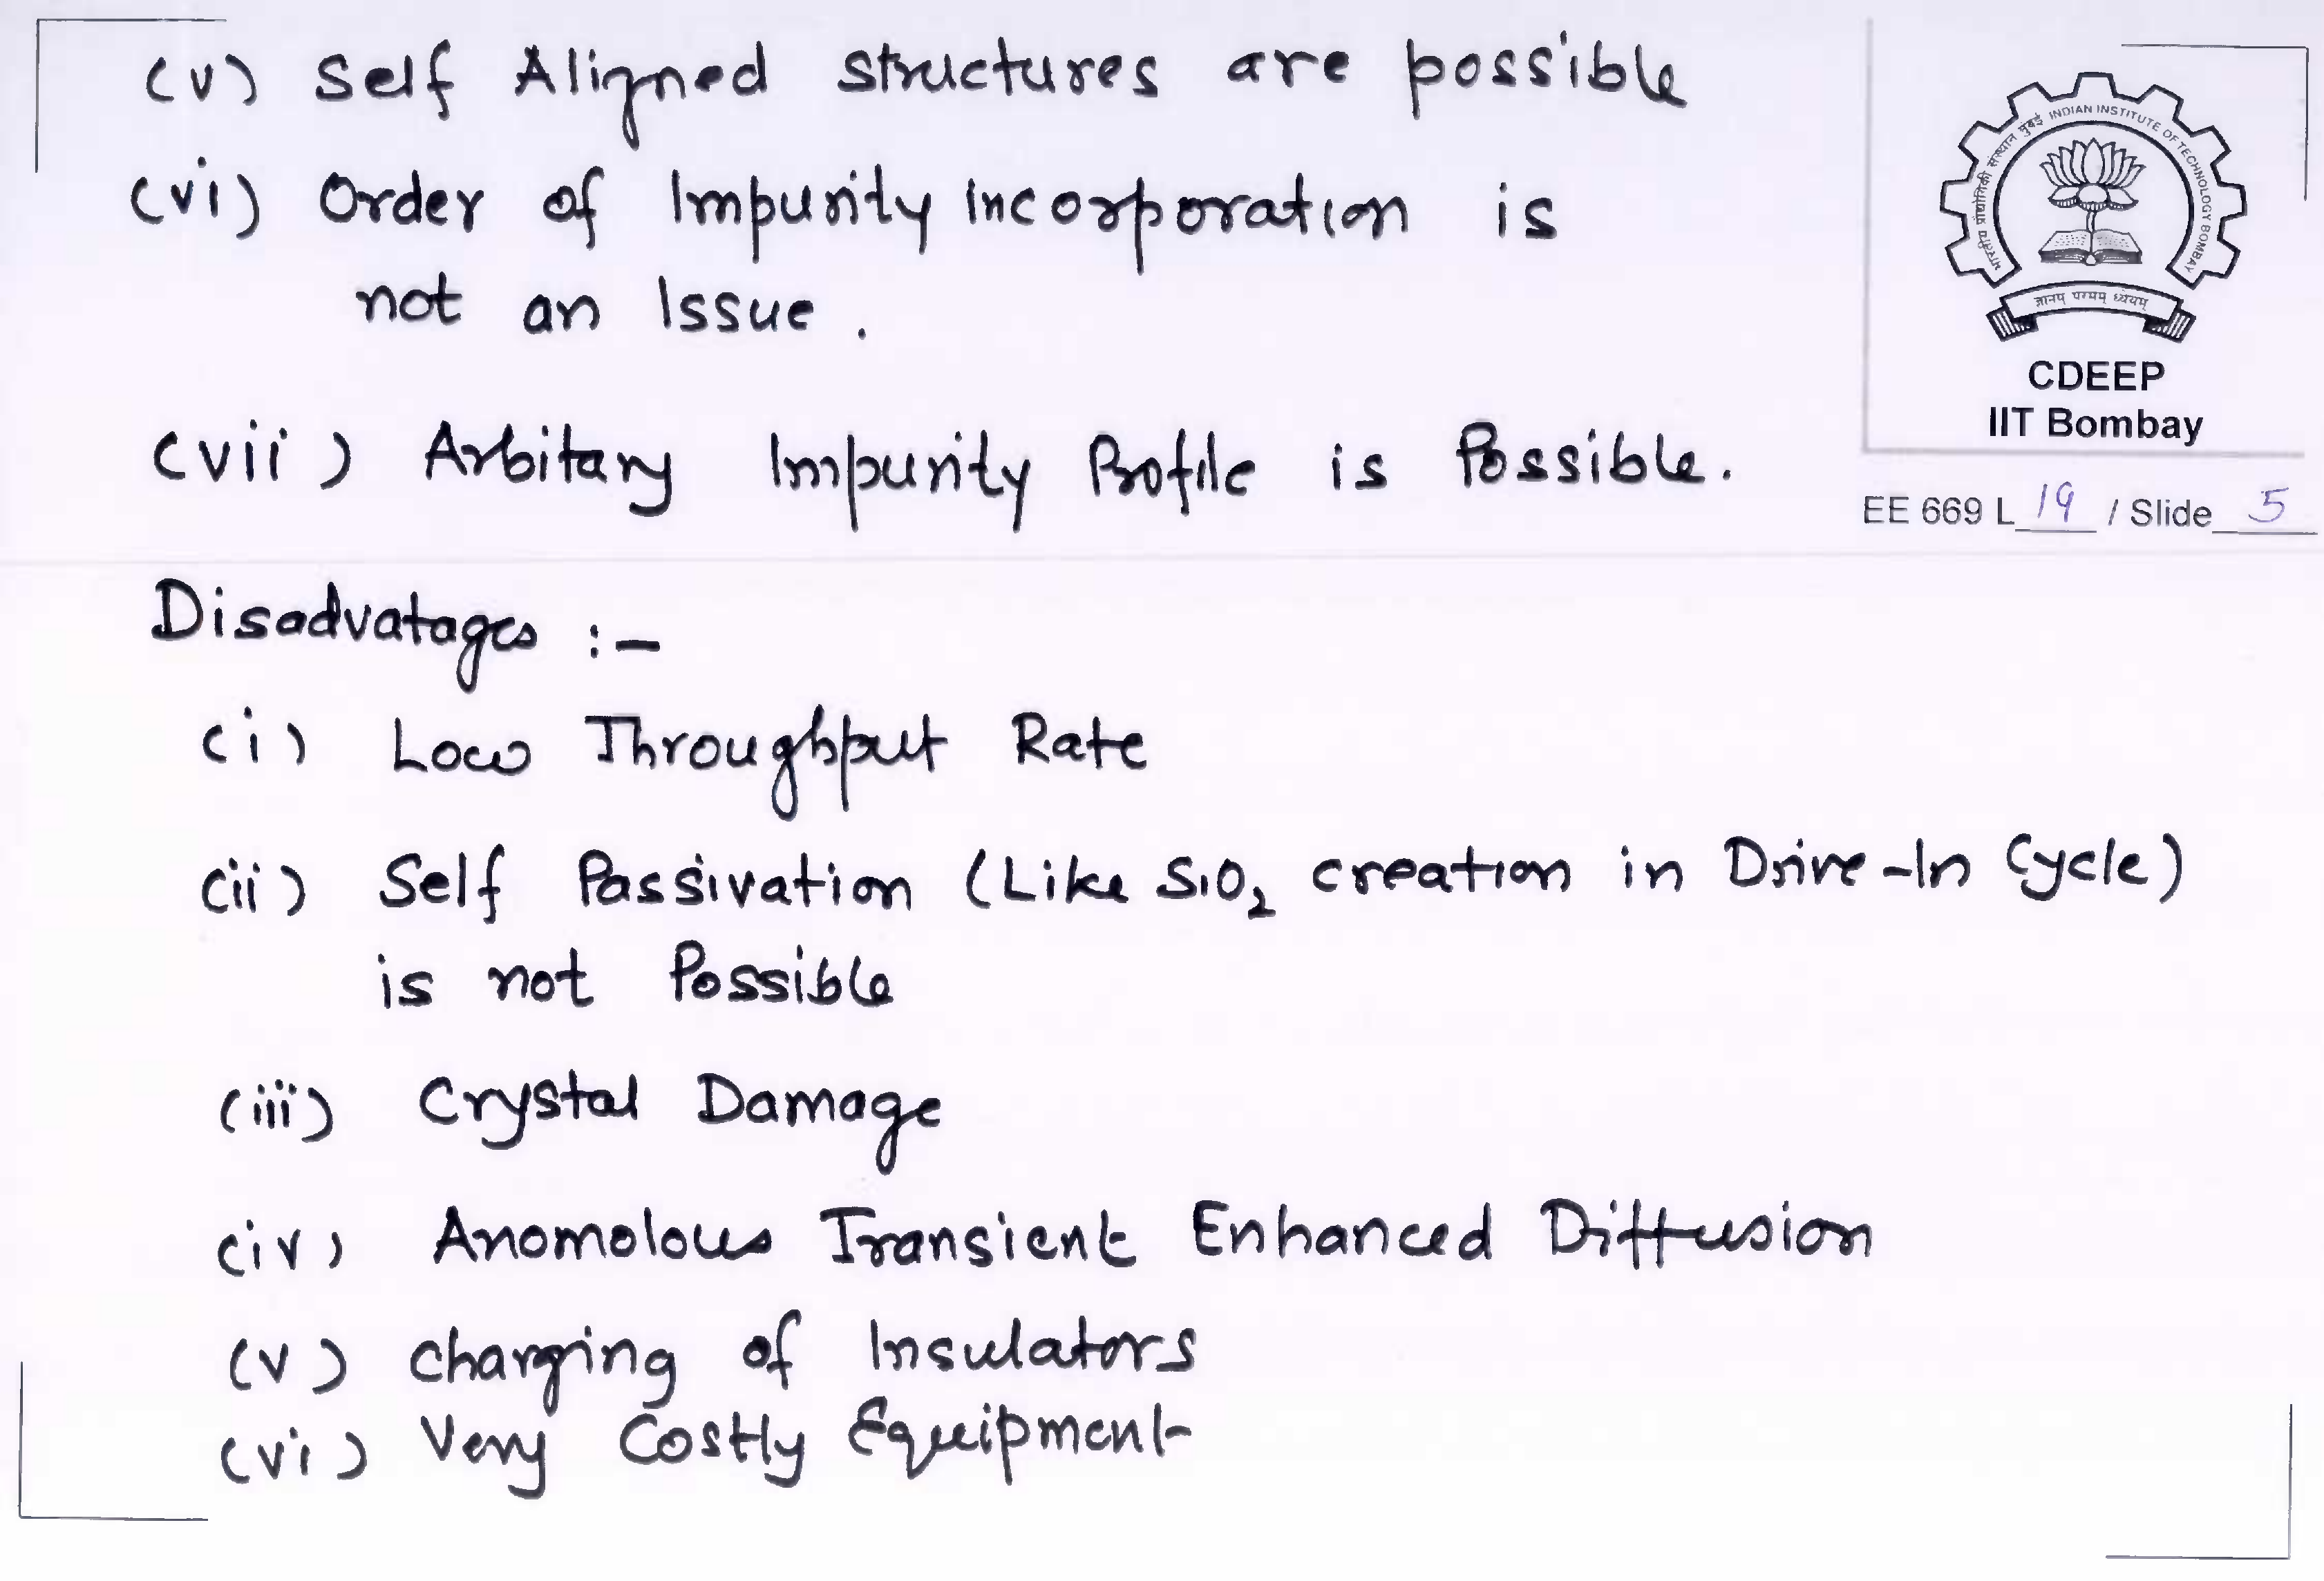 (v) Self Aligned structures are possible
(vi) Order of Impurity Incorporation is
not an Issue.
(vii) Arbitary Impurity Profile is Possible.
भारतीय प्रौद्योगिकी संस्थान मुंबई INDIAN INSTITUTE OF TECHNOLOGY BOMBAY
ज्ञानम् परमम् ध्येयम्
CDEEP
IIT Bombay
EE 669 L 19 / Slide 5
Disadvatages :-
(i) Low Throughput Rate
(ii) Self Passivation (Like SiO₂ creation in Drive-In Cycle)
is not Possible
(iii) Crystal Damage
(iv) Anomolous Transient Enhanced Diffusion
(v) Charging of Insulators
(vi) Very Costly Equipment